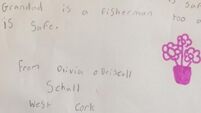 Grandad is a fisherman too a
is safe.
From Olivia o Driscoll
Schull
West Cork